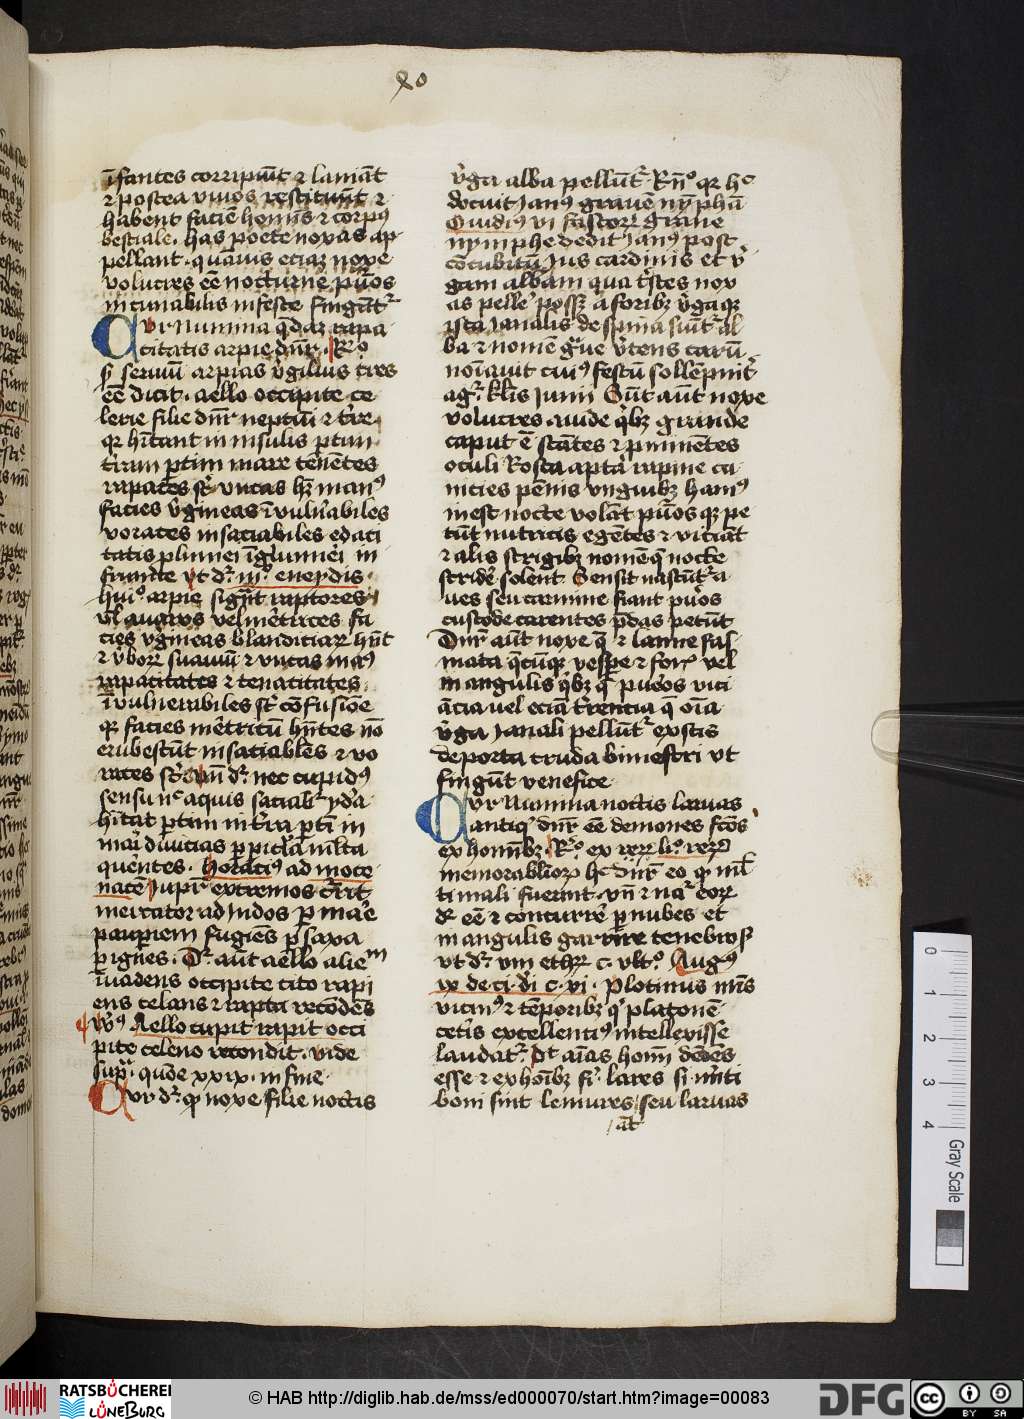 infantes corripiūt ⁊ laniāt
⁊ postea viuos restituūt ⁊
habent faciē homīs ⁊ corpꝰ
bestiale · has poete novas ap
pellant · quāuis eciaꝫ nove
volucres eē nocturne pūos
in cunabilis infeste fingūt
Cur Numina q̄daꝫ rapa
citatis arpie dn̄r · Rº
serviū arpias v̄gilius tres
eē dicit · aello occipite ce
leno filie dn̄r neptūi ⁊ t̄re
qr hītant in insulis ꝑtim
t̄ram ꝑtim mare tenētes
rapaces st̄ vncas hn̄t manꝰ
facies v̄gineas īvuln̄abiles
voraces insaciabiles edaci
tatis plumei īgluuiei in
vt dr̄ iiiº eneydis ·
huiº arpie signāt raptores
vl auaros vel mētrices fa
cies v̄gineas blandiciaꝝ hn̄t
⁊ v̄boꝝ suauiū ⁊ vncas manꝰ
rapacitates ⁊ tenacitates
īvulnerabiles st̄ cōfusiōe
qr facies mētricū hn̄tes nō
erubescūt insaciabiles ⁊ vo
races st̄ vn̄ dr̄ nec cupidꝰ
sensu nᶜ aquis saciabr̄ yda
hītāt ꝑtim in t̄ra ꝑtī in
mari diuicias ꝑ picla mlta
querētes · Horaciꝰ ad moce
nate Iupr̄ extremos curit
mercator ad Indos ꝑ mare
pauꝑiem fugiēs ꝑ saxa
ꝑ ignes · Dr̄ aūt aello alieᵐ
īvadens occipite cito rapi
ens celans ⁊ rapta recōdēs
Vꝰ Aello cupit rapit occi
pite celeno recondit · vide
supᵃ · quōe xxix · in fine ·
Cur dr̄ qͩ nove filie noctis
v̄ga alba pellūtr̄ Rn̄º qr hᶜ
docuit Janꝰ grauē nȳphā
Ouidiꝰ vi fastoꝝ grane
nymphe dedit Janꝰ post
cōcubitū Ius cardinis et v̄
gam albam qua t̄stes nox
as pelle posset a foribꝫ v̄gaqꝫ
ista Janalis de spina sūit al
ba ⁊ nomē v̄tens carū
noīauit cuiꝰ festū sollēpnit̄
agr̄ klis Iunii Sūt aūt nove
volucres auide qbꝫ grande
caput ē stātes ⁊ ꝓminētes
oculi Rostra apta rapine ca
nicies pēnis vnguibꝫ hamꝰ
inest nocte volāt pūos qꝫ pe
tūt nutricis egētes ⁊ viciāt
⁊ alis strigibꝫ nomēqꝫ nocte
stride solent Sensit nascūt a
ues seu carmine fiant pūos
custode carentes p̄das petūt
Dn̄r aūt nove ⁊ lamie fas
mata vespe ⁊ vel
in angulis qbꝫ pueros vici
āt a vel eciā t̄rentia oīa
v̄ga Janali pellūtr̄ exstis
de porta truda bimestri vt
fingūt venefice
Cur Numina noctis laruas
antiqi dn̄r eē demones fcōs
ex homībꝫ · Rº ex reꝝ liº reꝝ
memorabilioꝝ hᶜ dn̄r eo qͩ ml̄
ti mali fuerint · vn̄ ⁊ nā eoꝝ
dr̄ eē ⁊ concurre ꝑ nubes et
in angulis garrire tenebrosꝫ
vt dr̄ viii ethꝝ c · vltº Augꝰ
ix de ci · di c · xi · Plotinus mīs
vicinꝰ ⁊ tēporibꝫ platonē
ceteris excellentiꝰ intellexisse
laudatr̄ · Dt aīas homī deōes
esse ⁊ ex hoībꝫ fi · lares si mīti
boni sint lemures seu laruas
at
© HAB http://diglib.hab.de/mss/ed000070/start.htm?image=00083
RATSBÜCHEREI
LÜNEBURG
DFG
cc
BY SA
0
1
2
3
4
Gray Scale